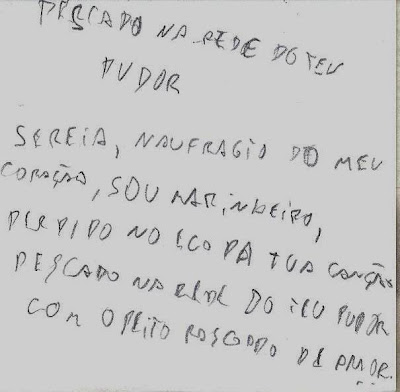 PESCADO NA REDE DO TEU
PUDOR
SEREIA, NAUFRAGIO DO MEU
CORAÇÃO, SOU MARINHEIRO,
PERDIDO NO ECO DA TUA CANÇÃO
PESCADO NA REDE DO TEU PUDOR
COM O PEITO RASGADO DE AMOR.